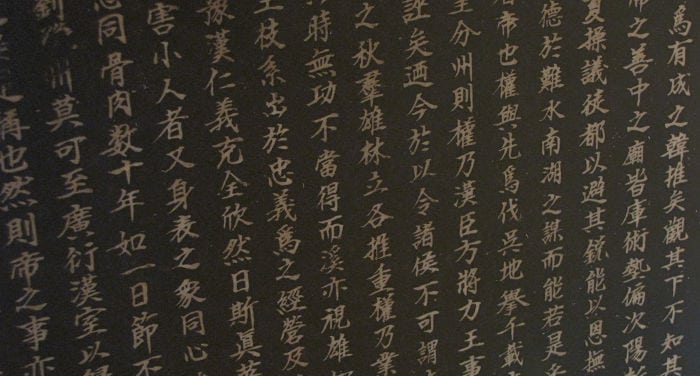 爲有成之韓推矣觀其下不知其
帝之善中之廟皆庫術藝偏次陽
夏操議徒都以避其鋒能以恩撫
德於難水南湖之謀而能若是乎
帝也權與先爲伐吳地擧千載
至分州則權乃漢臣方將力王事
誑矣迺今於以令諸侯不可謂
之秋羣雄林立各推重權乃業
時無功不當得而溪亦視雄
王枝系出於忠義爲之經營及
豫漢仁義充全欣然日斯眞
害小人者又身表之衆同心
同骨肉数十年如一日節不
劉 州莫可至廣衍漢室以
稱也然則帝之事亦